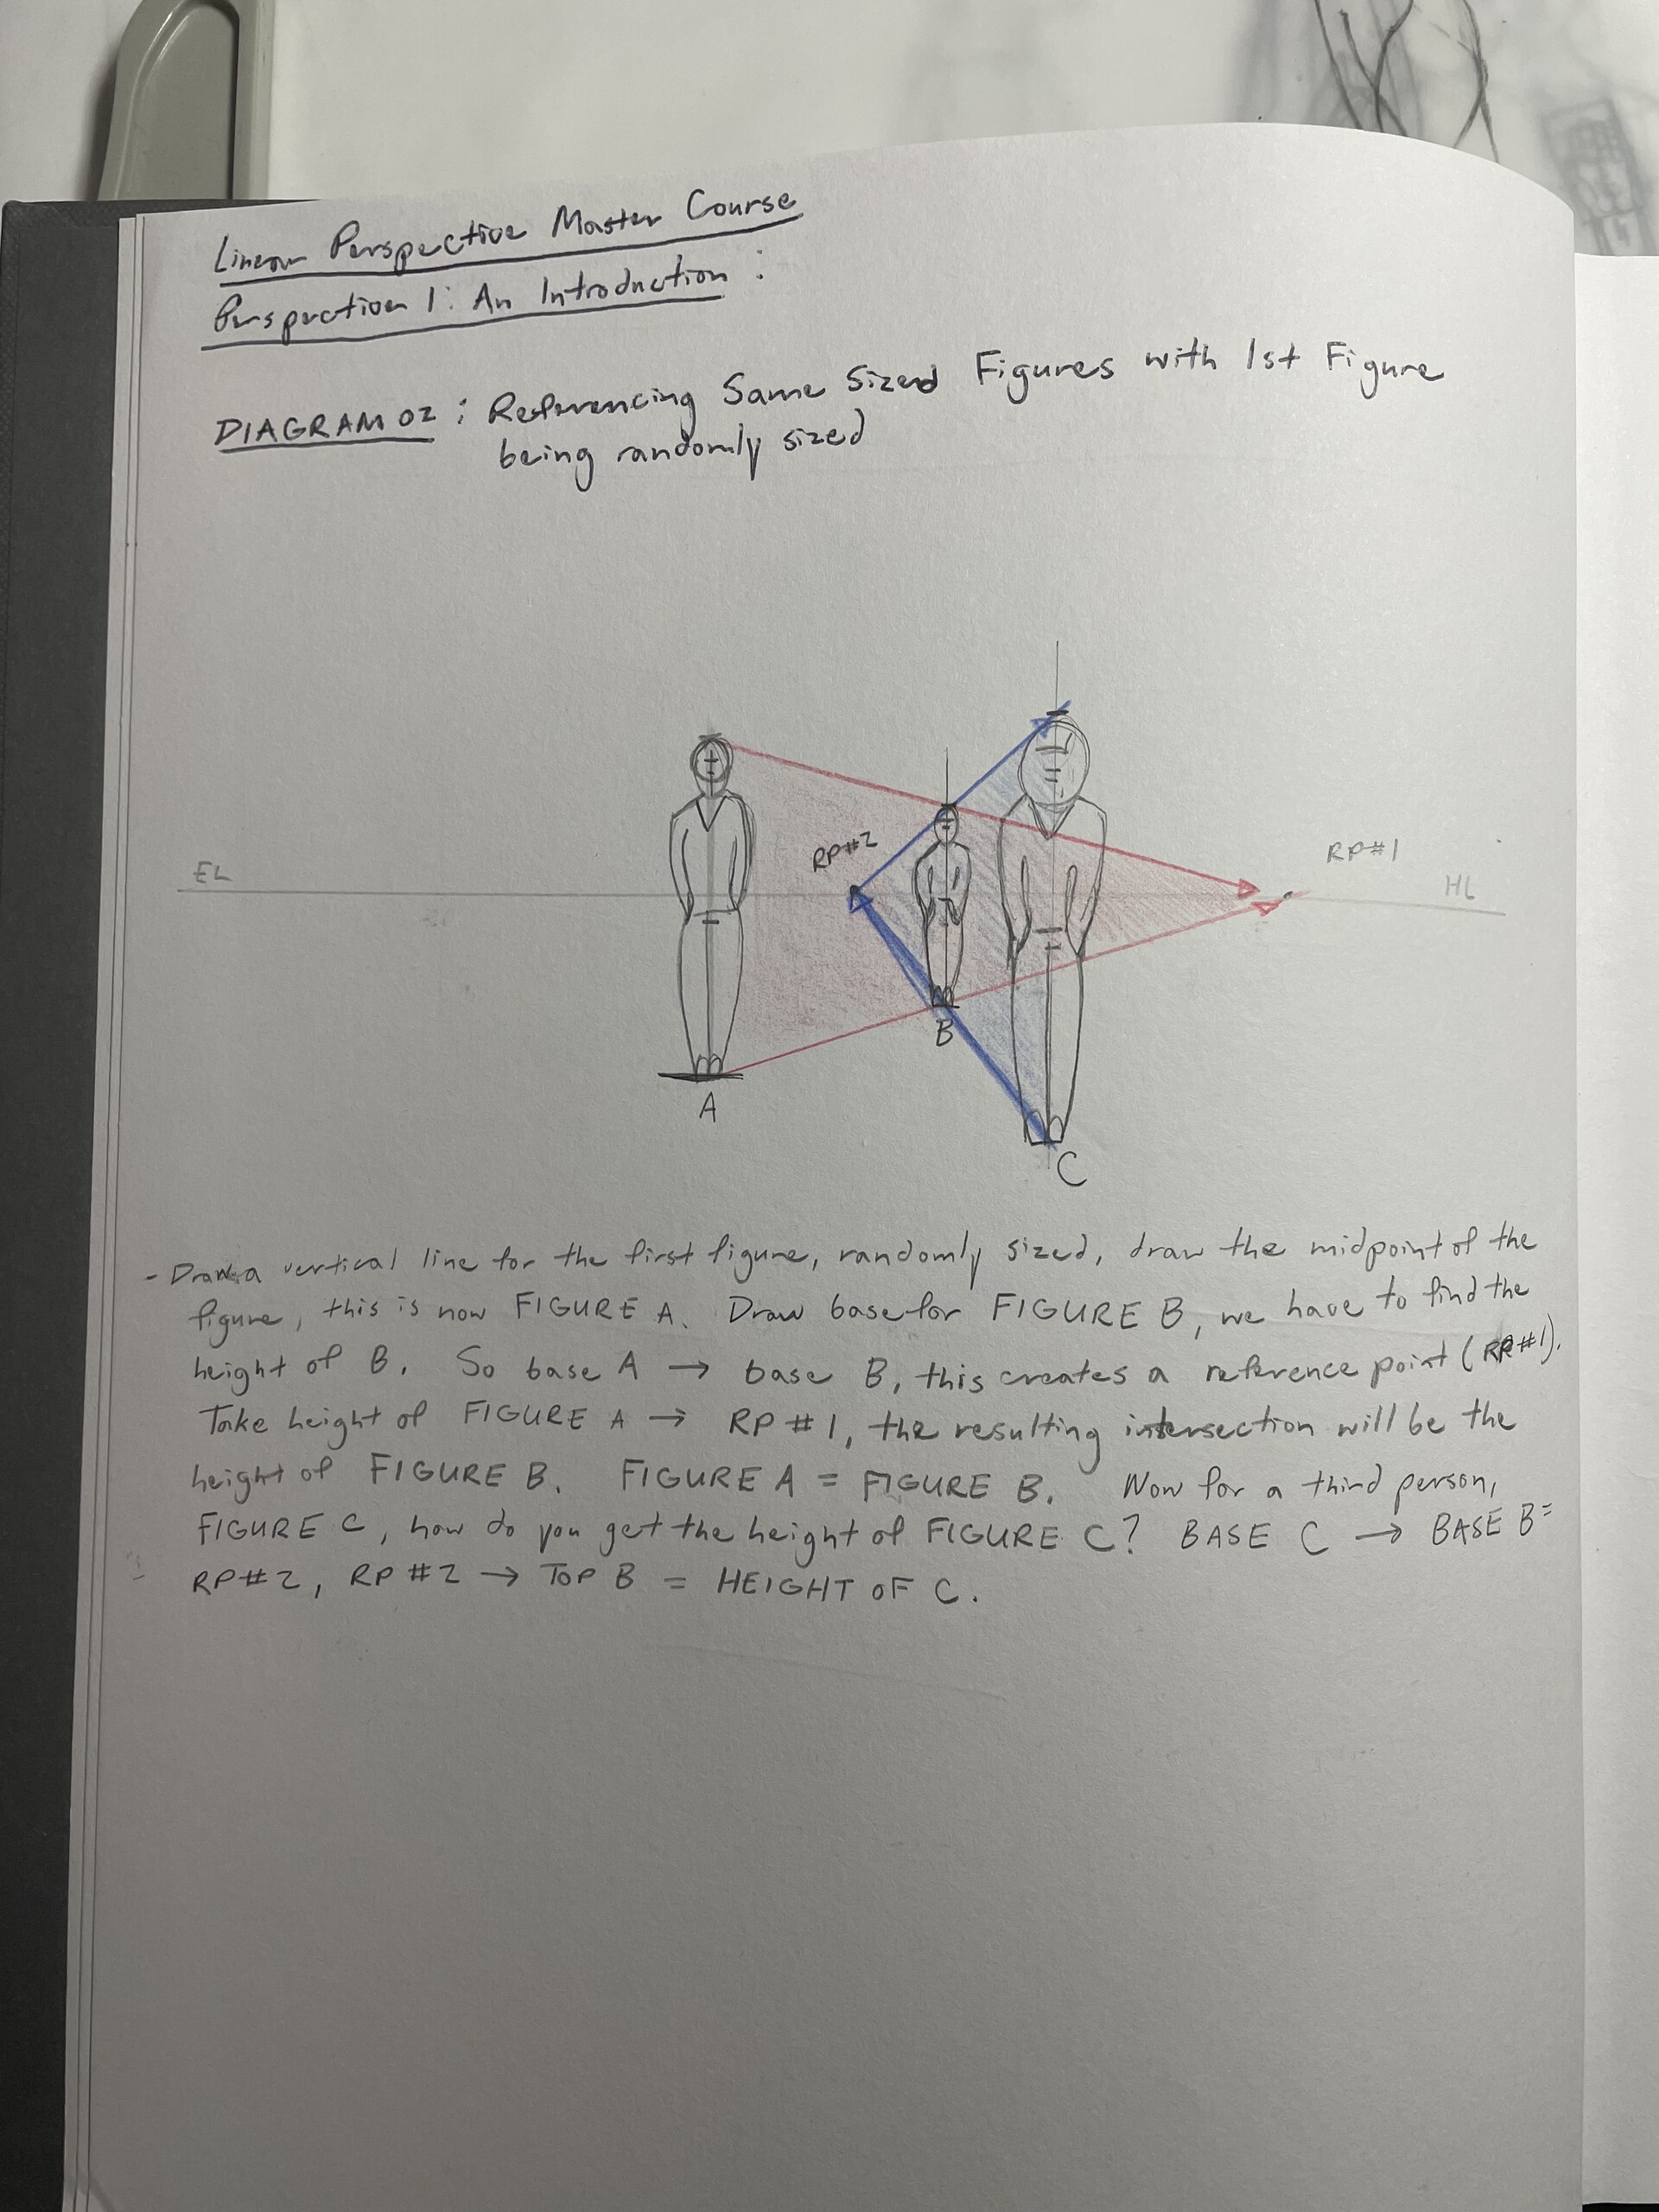 Linear Perspective Master Course
Perspective 1: An Introduction:
DIAGRAM 02: Referencing Same Sized Figures with 1st Figure
being randomly sized
RP#2
RP#1
EL
HL
B
A
C
- Draw a vertical line for the first figure, randomly sized, draw the midpoint of the
figure, this is now FIGURE A. Draw base for FIGURE B, we have to find the
height of B. So base A → base B, this creates a reference point (RP#1).
Take height of FIGURE A → RP #1, the resulting intersection will be the
height of FIGURE B. FIGURE A = FIGURE B. Now for a third person,
FIGURE C, how do you get the height of FIGURE C? BASE C → BASE B =
RP#2, RP #2 → TOP B = HEIGHT OF C.